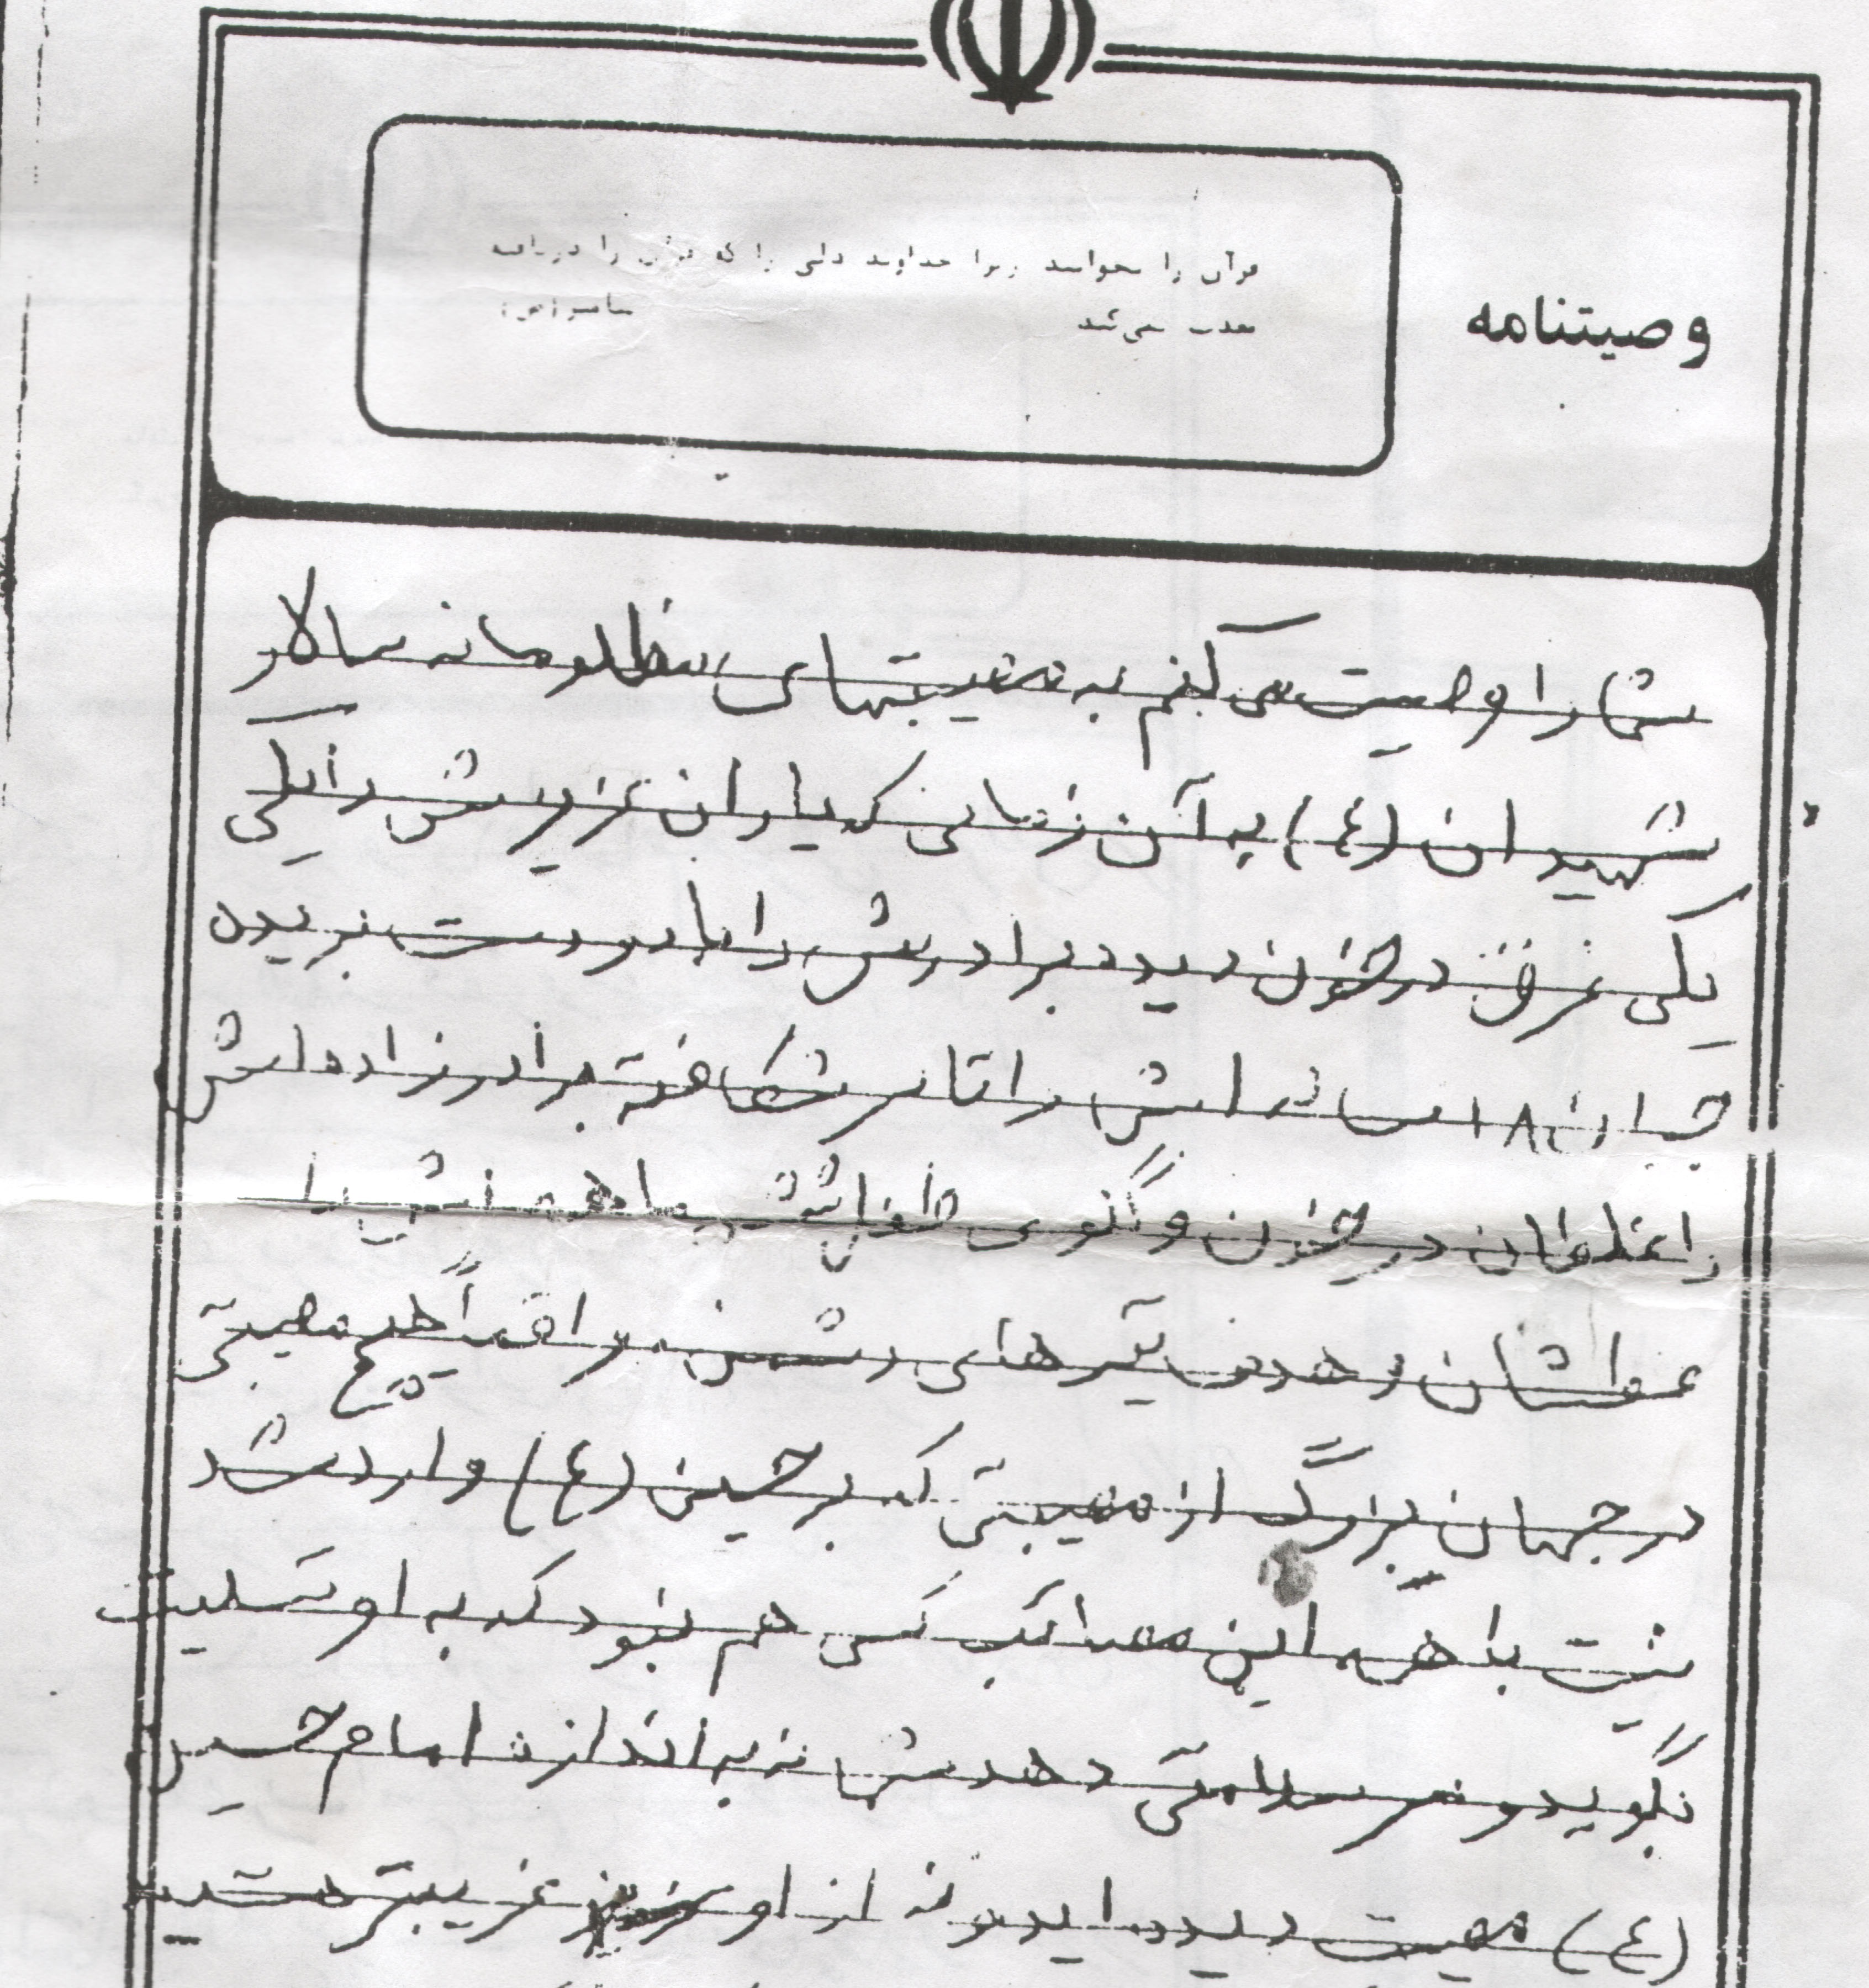 وصیتنامه
قرآن را بخوانید زیرا خداوند دلی را که قرآن را دریافته
عذاب نمی‌کند پیامبر (ص)
شما را وصیت می کنم به مصیبتهای مظلومانه سالار
شهیدان (ع) به آن زمانی که یاران عزیزش را یکی
یکی غرق در خون دید برادرش را با دو دست بریده
جوان ۱۸ ساله اش را تا سر شکافته برادرزاده اش
را غلطان در خون و گلوی طفل شش ماهه اش را
عطشان و هدف تیرهای دشمن واقعاً هیچ مصیبتی
در جهان بزرگ از مصیبتی که بر حسین (ع) وارد شد
نیست با همه این مصائب کسی هم نبود که به او تسلیت
بگوید و سر سلامتی دهد شما نه به اندازه امام حسین
(ع) مصیبت دیده اید و نه از او غریبتر هستید